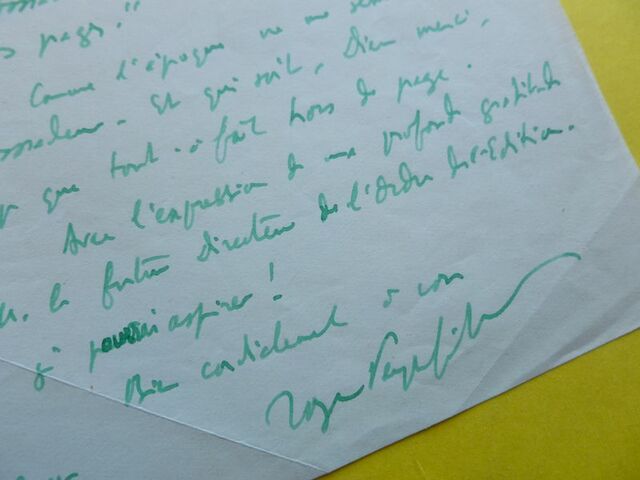 pages."
Comme l'époque ne me
Et qui soit, Dieu merci,
que tout à fait hors de page.
Avec l'expression de ma profonde gratitude
le futur directeur de l'Ordre de l'Edition.
j' pourrai aspirer!
Bien cordialement à vous
Roger Peyrefitte